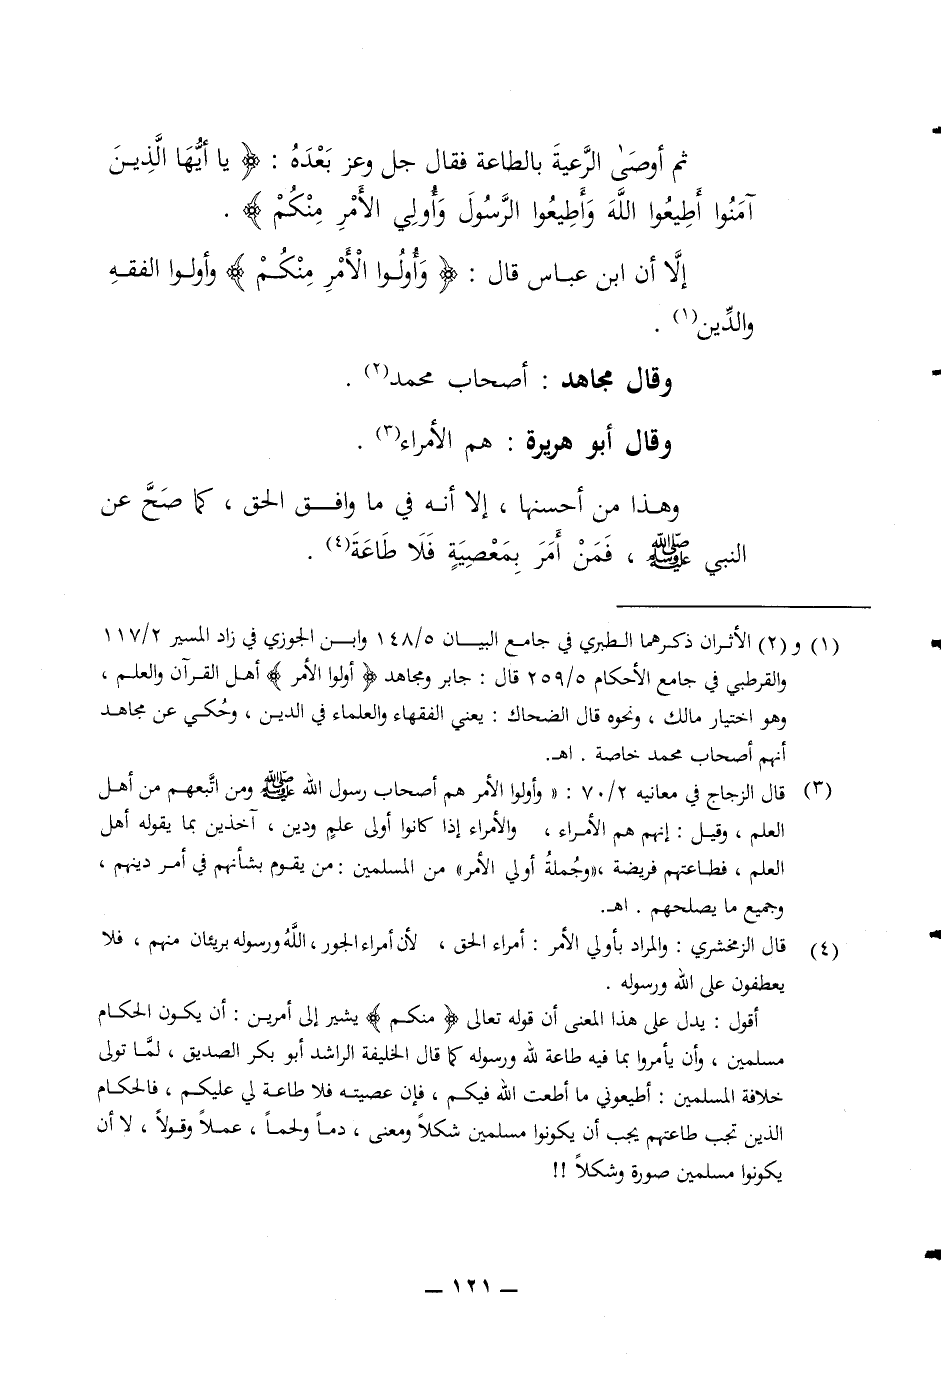 ثم أوصَىٰ الرَّعيةَ بالطاعة فقال جل وعز بَعْدَهُ : ﴿ يا أيُّهَا الَّذِينَ
آمَنُوا أَطِيعُوا اللَّهَ وَأَطِيعُوا الرَّسُولَ وَأُولِي الأَمْرِ مِنْكُمْ ﴾ .
إلَّا أن ابن عباس قال : ﴿ وَأُولُوا الْأَمْرِ مِنْكُمْ ﴾ وأولوا الفقهِ
والدِّين(١) .
وقال مجاهد : أصحاب محمد(٢) .
وقال أبو هريرة : هم الأمراء(٣) .
وهذا من أحسنها ، إلا أنه في ما وافق الحق ، كما صَحَّ عن
النبي ﷺ ، فَمَنْ أَمَرَ بِمَعْصِيَةٍ فَلَا طَاعَةَ(٤) .
(١) و (٢) الأثران ذكرهما الطبري في جامع البيان ١٤٨/٥ وابن الجوزي في زاد المسير ١١٧/٢
والقرطبي في جامع الأحكام ٢٥٩/٥ قال : جابر ومجاهد ﴿ أولوا الأمر ﴾ أهل القرآن والعلم ،
وهو اختيار مالك ، ونحوه قال الضحاك : يعني الفقهاء والعلماء في الدين ، وحُكي عن مجاهد
أنهم أصحاب محمد خاصة . اهـ.
(٣) قال الزجاج في معانيه ٧٠/٢ : « وأولوا الأمر هم أصحاب رسول الله ﷺ ومن اتَّبعهم من أهل
العلم ، وقيل : إنهم هم الأمراء ، والأمراء إذا كانوا أولى علمٍ ودين ، آخذين بما يقوله أهل
العلم ، فطاعتهم فريضة ،«وجُملةُ أولي الأمر» من المسلمين : من يقوم بشأنهم في أمر دينهم ،
وجميع ما يصلحهم . اهـ.
(٤) قال الزمخشري : والمراد بأولي الأمر : أمراء الحق ، لأن أمراء الجور ، اللَّهُ ورسوله بريئان منهم ، فلا
يعطفون على الله ورسوله .
أقول : يدل على هذا المعنى أن قوله تعالى ﴿ منكم ﴾ يشير إلى أمرين : أن يكون الحكام
مسلمين ، وأن يأمروا بما فيه طاعة لله ورسوله كما قال الخليفة الراشد أبو بكر الصديق ، لمَّا تولى
خلافة المسلمين : أطيعوني ما أطعت الله فيكم ، فإن عصيته فلا طاعة لي عليكم ، فالحكام
الذين تجب طاعتهم يجب أن يكونوا مسلمين شكلاً ومعنى ، دماً ولحماً ، عملاً وقولاً ، لا أن
يكونوا مسلمين صورة وشكلاً !!
ــ ١٢١ ــ